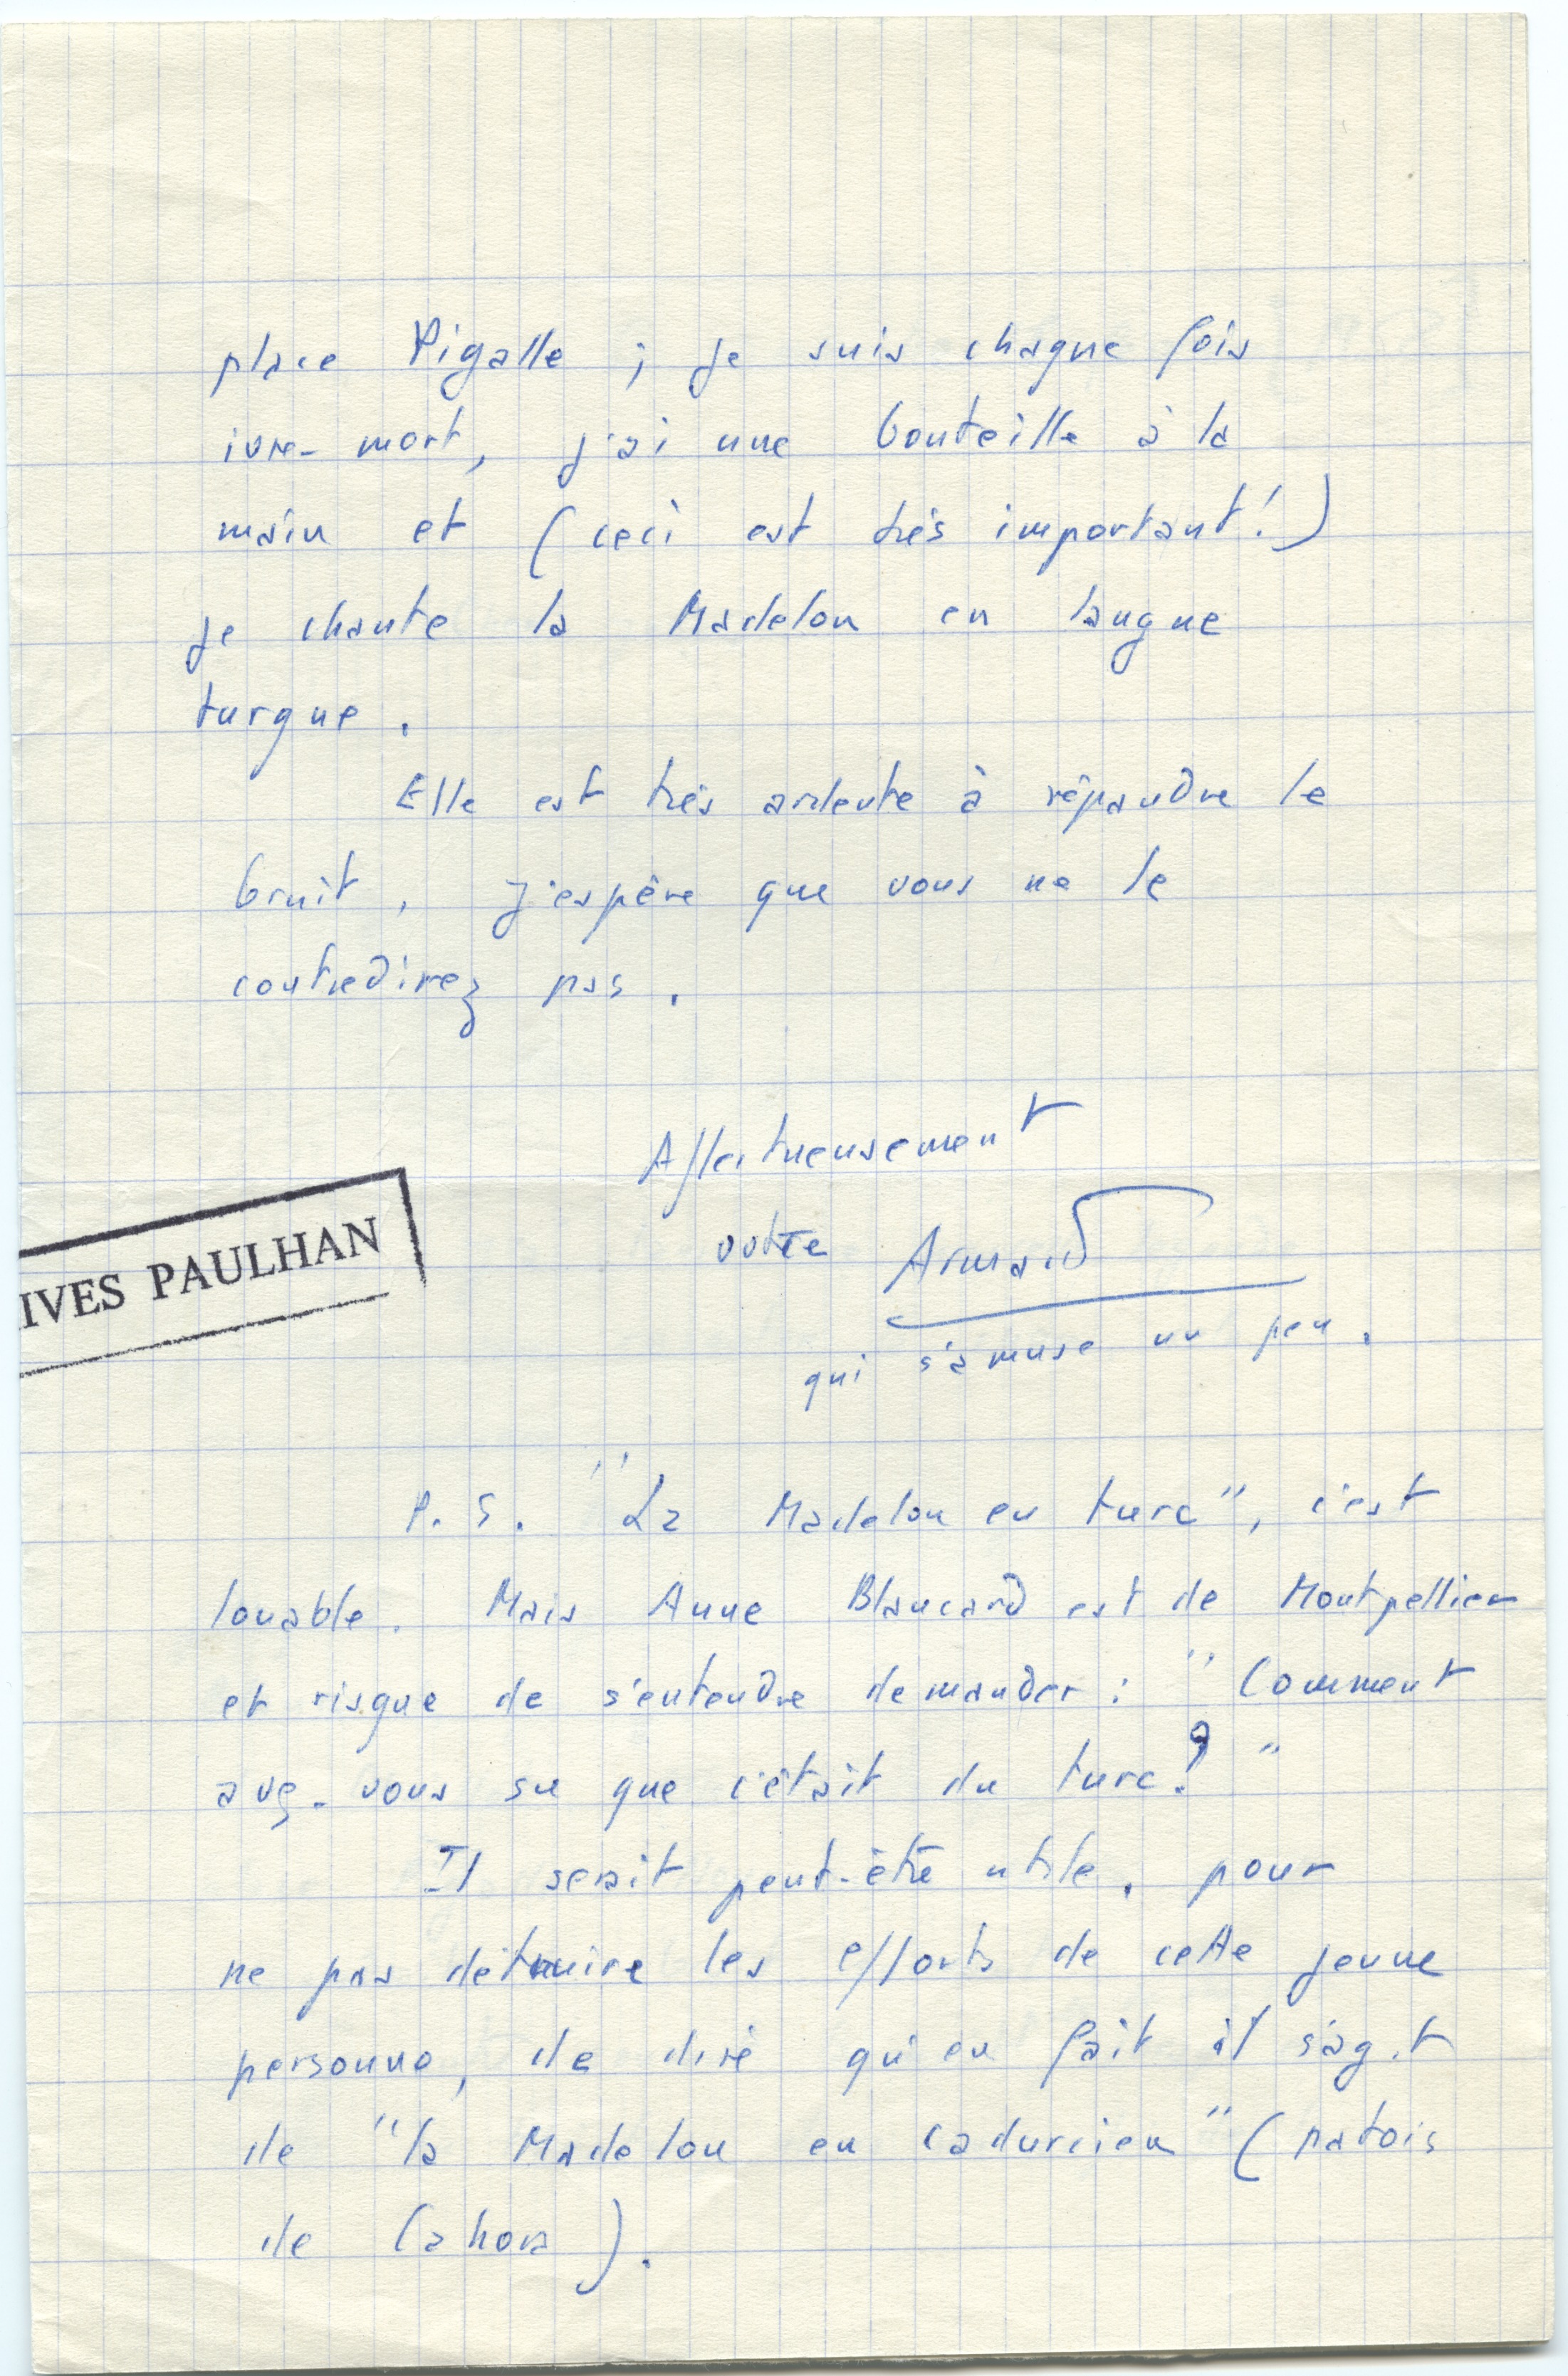 place Pigalle ; je suis chaque fois
ivre-mort, j'ai une bouteille à la
main et (ceci est très important !)
je chante la Madelon en langue
turque .
Elle est très ardente à répandre le
bruit , j'espère que vous ne le
contredirez pas .
Affectueusement
votre Armand
qui s'amuse un peu .
IVES PAULHAN
P. S. "La Madelon en turc", c'est
louable . Mais Anne Blancard est de Montpellier
et risque de s'entendre demander : "Comment
avez-vous su que c'était du turc ? "
Il serait peut-être utile , pour
ne pas détruire les efforts de cette jeune
personne, de dire qu'en fait il s'agit
de "la Madelon en cadurcien" (patois
de Cahors ) .